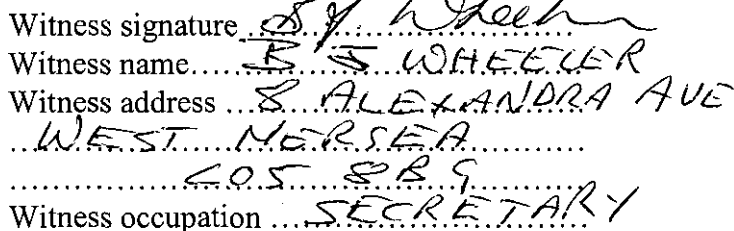 Witness signature B J Wheeler
Witness name..... B J WHEELER
Witness address ... 8 ALEXANDRA AVE
WEST MERSEA
CO5 8BG
Witness occupation .... SECRETARY